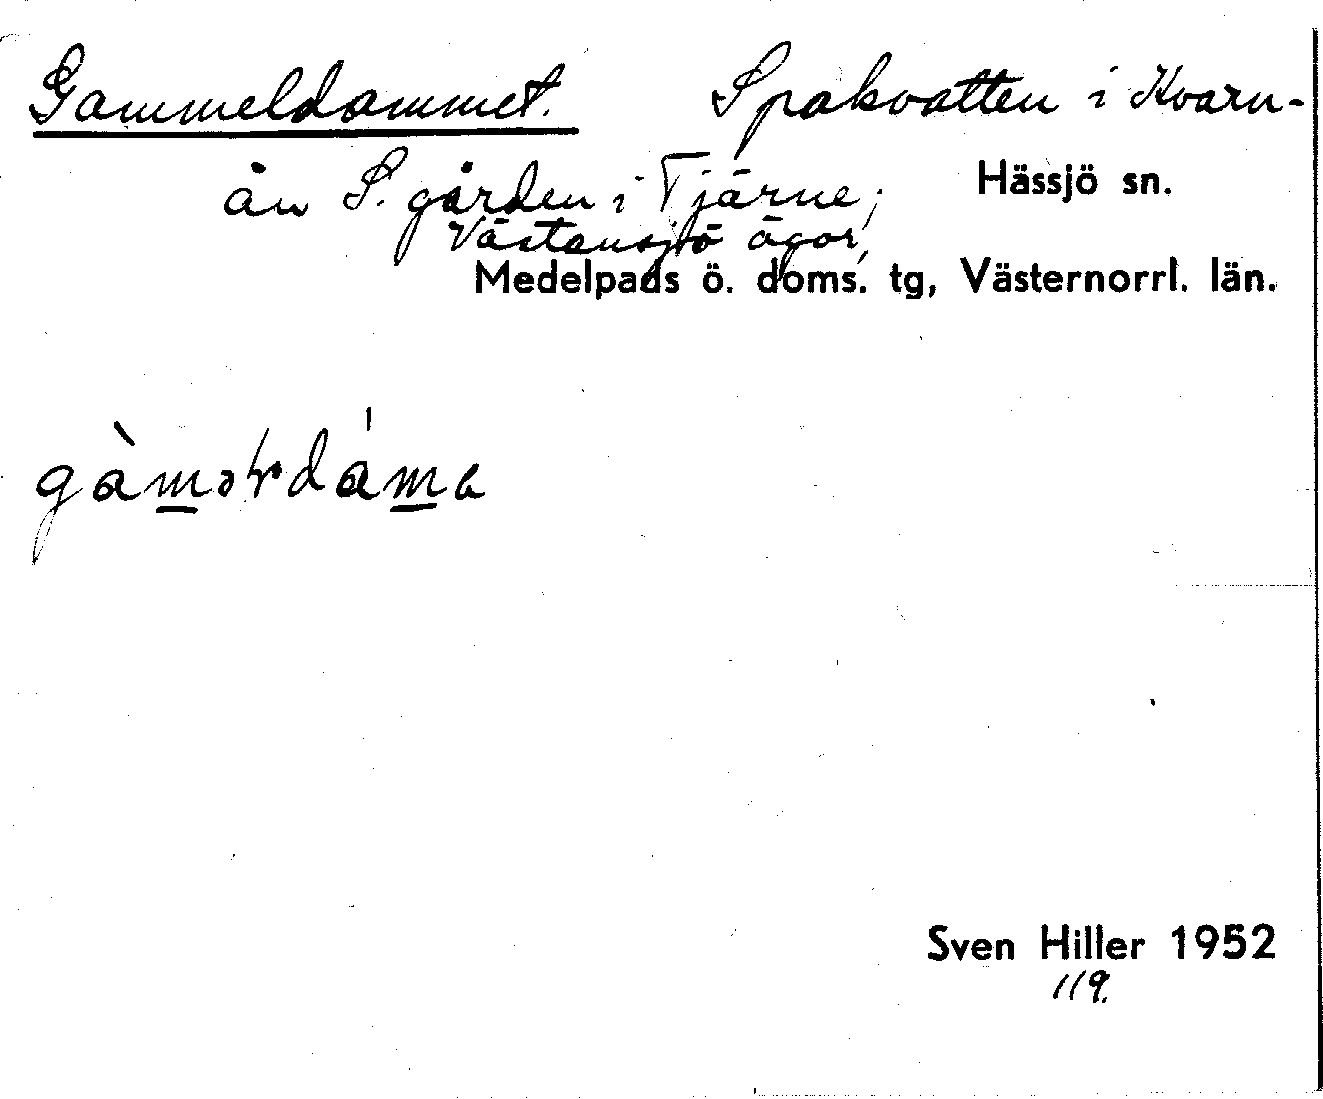 Gammeldammet. Spakvatten i Kvarn-
ån S. gården i Tjärne, Hässjö sn.
Västansjö ägor,
Medelpads ö. doms. tg, Västernorrl. län.
Sven Hiller 1952
119.